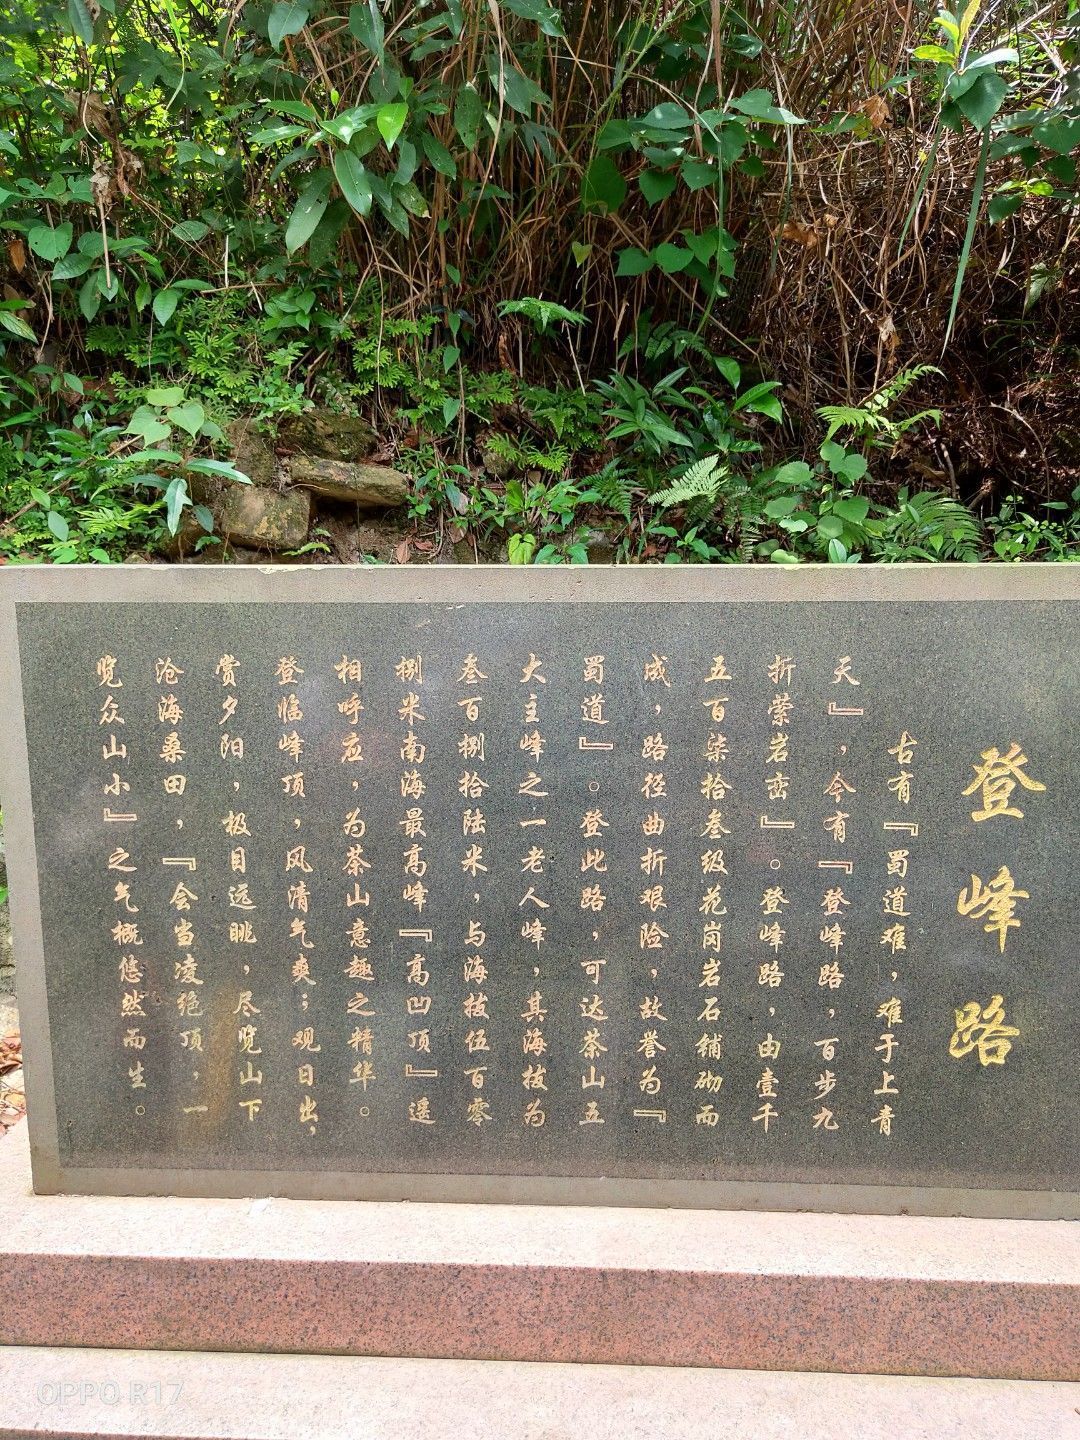 登峰路
古有『蜀道难，难于上青
天』，今有『登峰路，百步九
折萦岩峦』。登峰路，由壹千
五百柒拾叁级花岗岩石铺砌而
成，路径曲折艰险，故誉为『
蜀道』。登此路，可达茶山五
大主峰之一老人峰，其海拔为
叁百捌拾陆米，与海拔伍百零
捌米南海最高峰『高凹顶』遥
相呼应，为茶山意趣之精华。
登临峰顶，风清气爽；观日出，
赏夕阳，极目远眺，尽览山下
沧海桑田，『会当凌绝顶，一
览众山小』之气概悠然而生。
OPPO R17